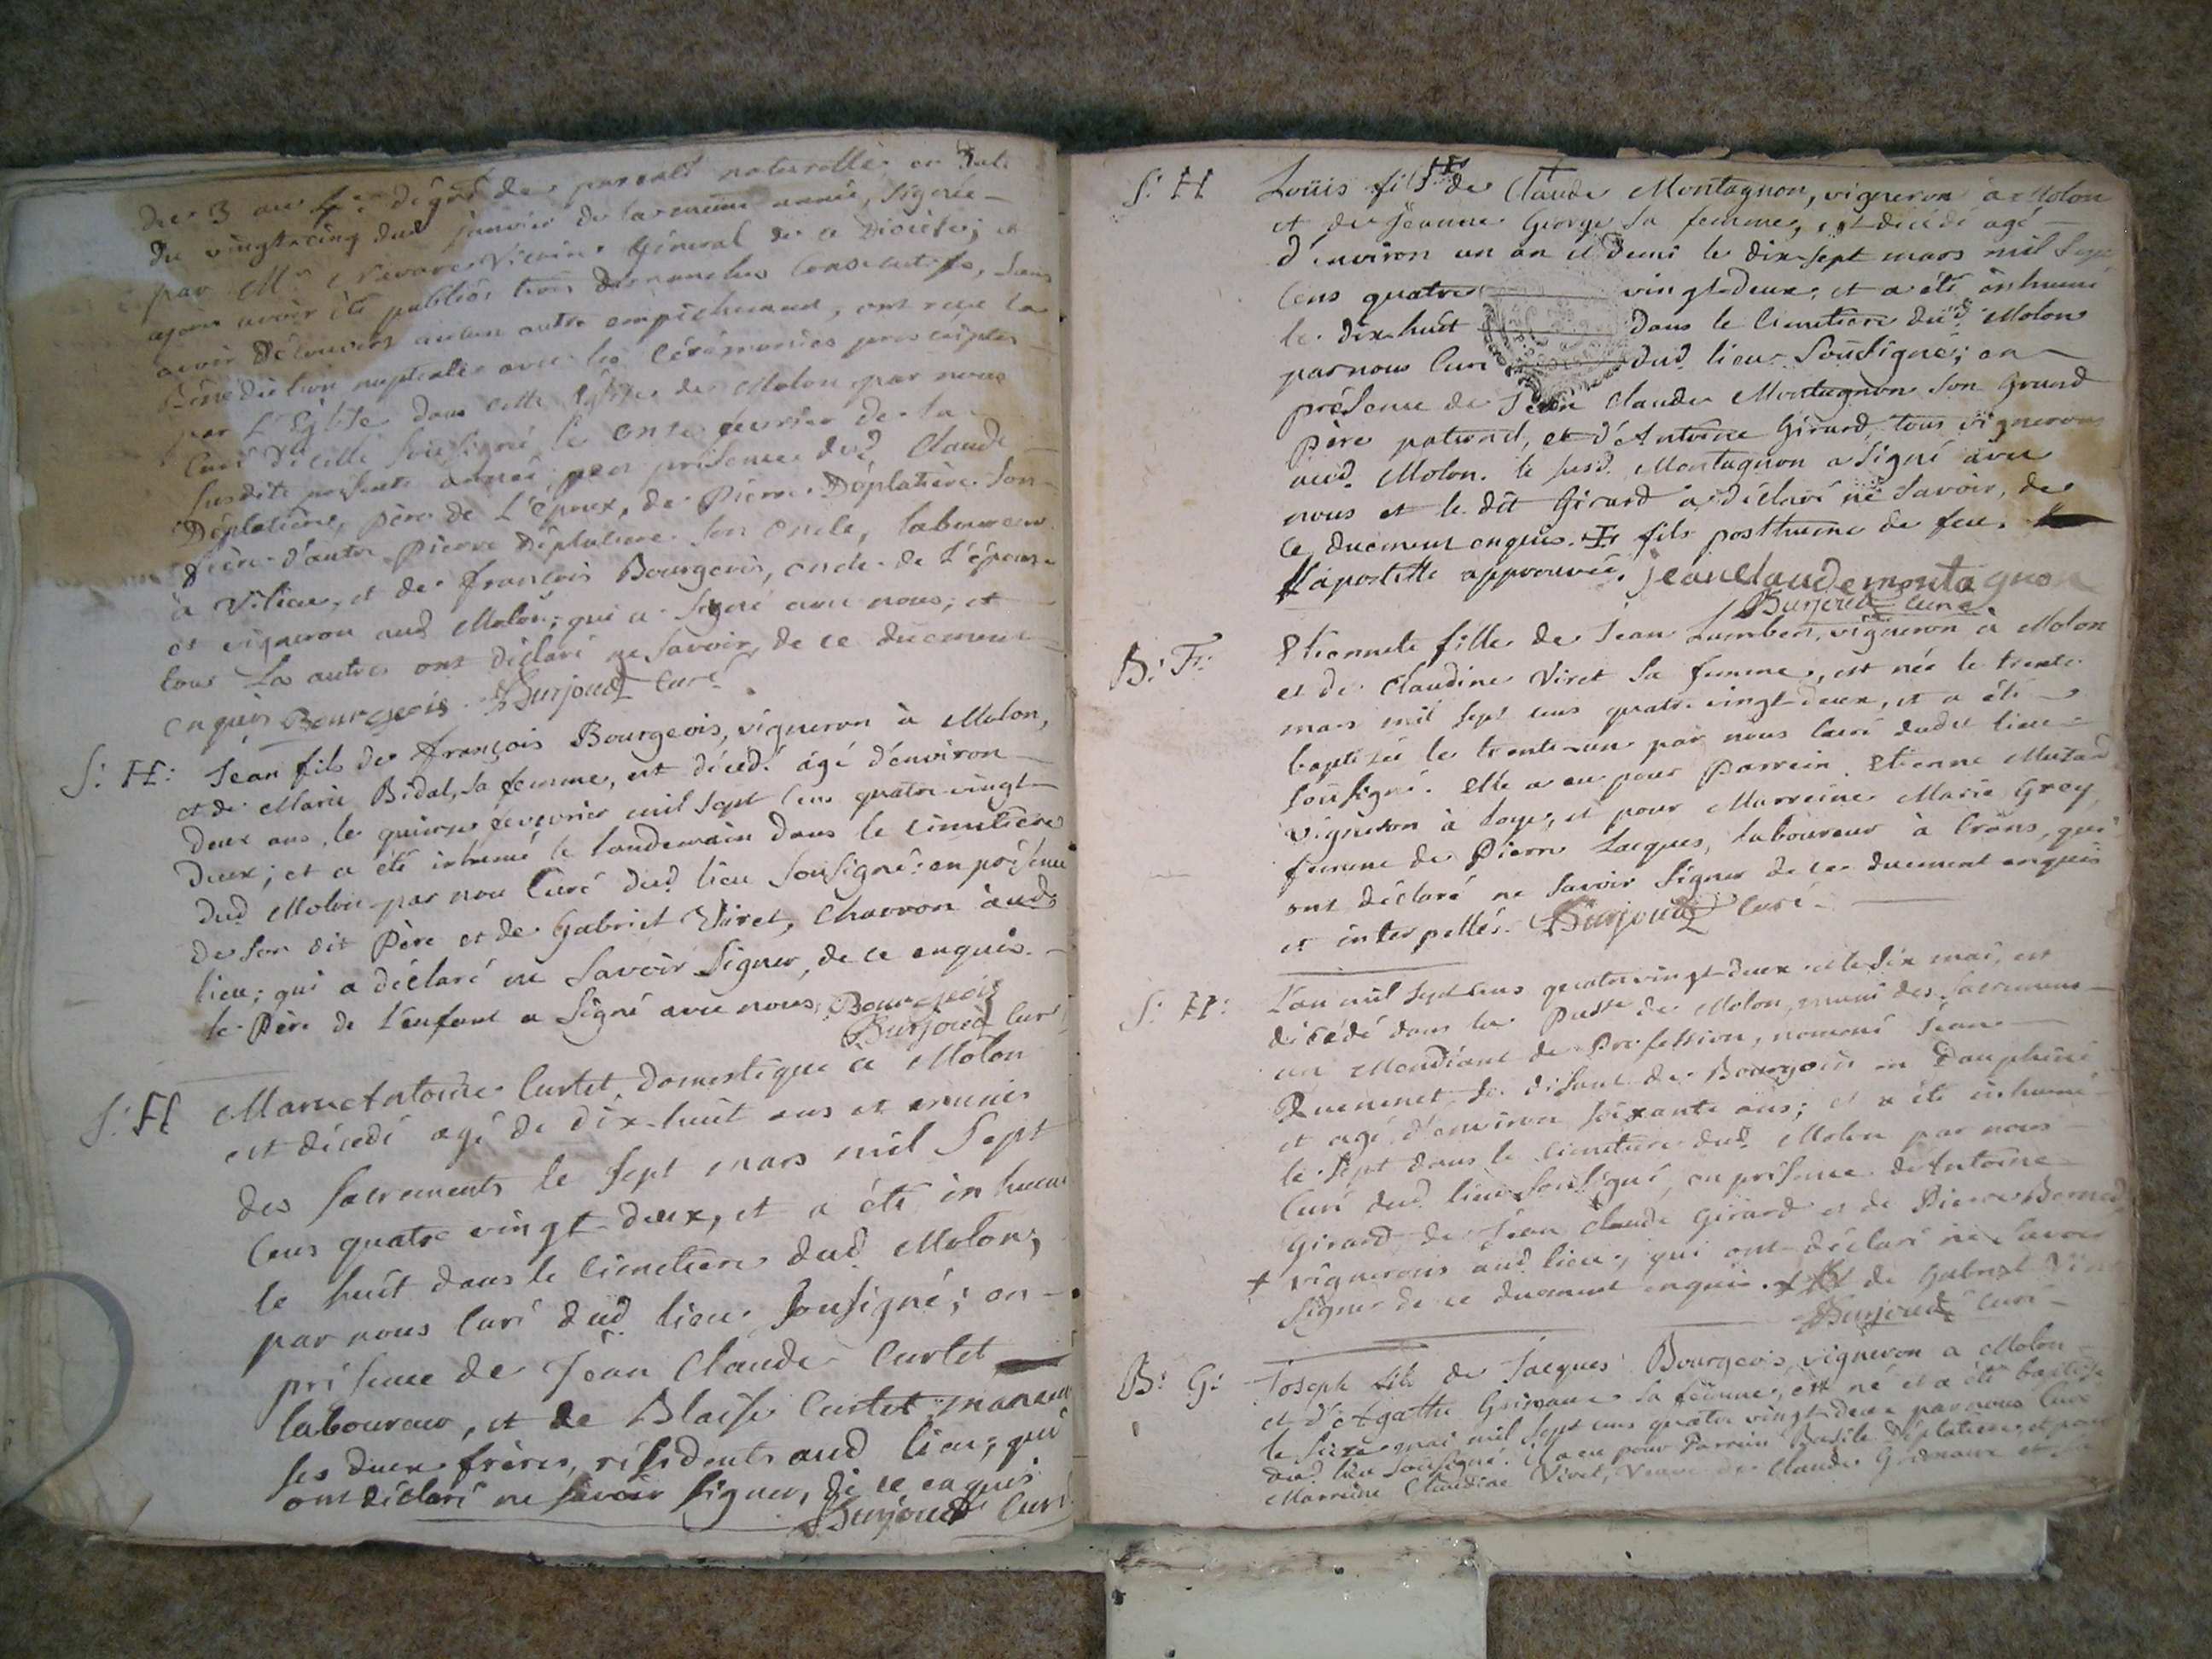 du 3 au 4e dégré de parenté naturelle en date
du vingt-cinq dud janvier de la même année, signée
par Mr Vicaire Général de ce Diocèse; et
après avoir été publiés trois dimanches consecutifs, sans
avoir découvert aucun autre empêchement, ont reçu la
Bénédiction nuptiale avec les cérémonies prescriptes
par L'Eglise dans cette Eglise de Molon par nous
Curé d'icelle sousigné le onze fevrier de la
susdite présente année; en présence dud Claude
Déplatière, père de L'époux, de Pierre Déplatière son
frère d'autre Pierre Déplatière son oncle, laboureur
à Vilieu, et de françois Bourgeois, oncle de L'épouse
et vigneron aud Molon; qui a signé avec nous; et
tous Les autres ont déclaré ne savoir, de ce duement
enquis Bourgeois. Burjoud Curé.
S: H: Jean fils de françois Bourgeois, vigneron à Molon,
et de Marie Bidal, sa femme, est décédé âgé d'environ
deux ans, le quinze fevevrier mil sept cens quatre vingt
deux; et a été inhumé le landemain dans le cimetière
dud Molon par nou Curé dud lieu sousigné: en présence
de son dit Père et de Gabriel Viret, Charron aud
lieu; qui a déclaré ne savoir signer, de ce enquis.
le Père de L'enfant a signé avec nous. Bourgeois
Burjoud Curé
S: H Marc Antoine Curtet domestique à Molon
est décédé agé de dix-huit ans et munis
des sacrements le sept mars mil sept
cens quatre vingt-deux, et a été inhumé
le huit dans le cimetiere dud Molon,
par nous Curé dud lieu sousigné; en
présence de Jean Claude Curtet
laboureur, et de Blaise Curtet
ses deux frères, résidents aud lieu; qui
ont déclaré ne savoir signer, de ce enquis
Burjoud Curé
S: H Loüis fils ++ de Claude Montagnon, vigneron à Molon
et de Jeanne George sa femme, est décédé agé
d'environ un an et demi le dix-sept mars mil sept
cens quatre vingt-deux, et a été inhumé
le dix huit dans le cimetiere dud Molon
par nous Curé dud lieu sousigné; en
présence de Jean Claude Montagnon son grand
père paternel, et d'Antoine Girard, tous vignerons
aud. Molon. le susd. Montagnon a signé avec
nous et le dit Girard a déclaré ne savoir, de
ce duement enquis. ++ fils posthume de feu.
l'apostille approuvée. jeanclaudemontagnon
Burjoud Curé.
B: F: Etiennete fille de Jean Lambert, vigneron à Molon
et de Claudine Viret sa femme, est née le trente
mars mil sept cens quatre vingt-deux, et a été
baptisée le trente-un par nous Curé dudit lieu
sousigné. Elle a eu pour Parrein Etienne Muzard
vigneron à Loyes, et pour Marreine Marie Grey,
femme de Pierre Jacques, laboureur à Crans, qui
ont déclaré ne savoir signer de ce duement enquis
et interpellés. Burjoud Curé
S: H: L'an mil sept cens quatrevingt-deux et le six mai, est
décédé dans la Psse de Molon, muni des sacremens
un Mendiant de Profession, nomené Jean
Quenenet se disant de Bourgoin en Dauphiné
et agé d'environ soixante ans; et a été inhumé
le sept dans le cimetiere dud Molon par nous
Curé dud lieu sousigné, en présence d'Antoine
Girard de Jean Claude Girard et de Pierre Bernard,
+ vignerons aud lieu, qui ont déclaré ne savoir
signer de ce duement enquis. + et de Gabriel Viret
Burjoud Curé
B: G: Joseph fils de Jacques Bourgeois, vigneron à Molon
et d'Agathe Grivaux sa femme, est né et a été baptisé
le seize mai mil sept cens quatre vingt-deux par nous Curé
dud. lieu sousigné. il a eu pour Parrein Basile Déplatière, et pour
Marreine Claudine Viret, Veuve de Claude